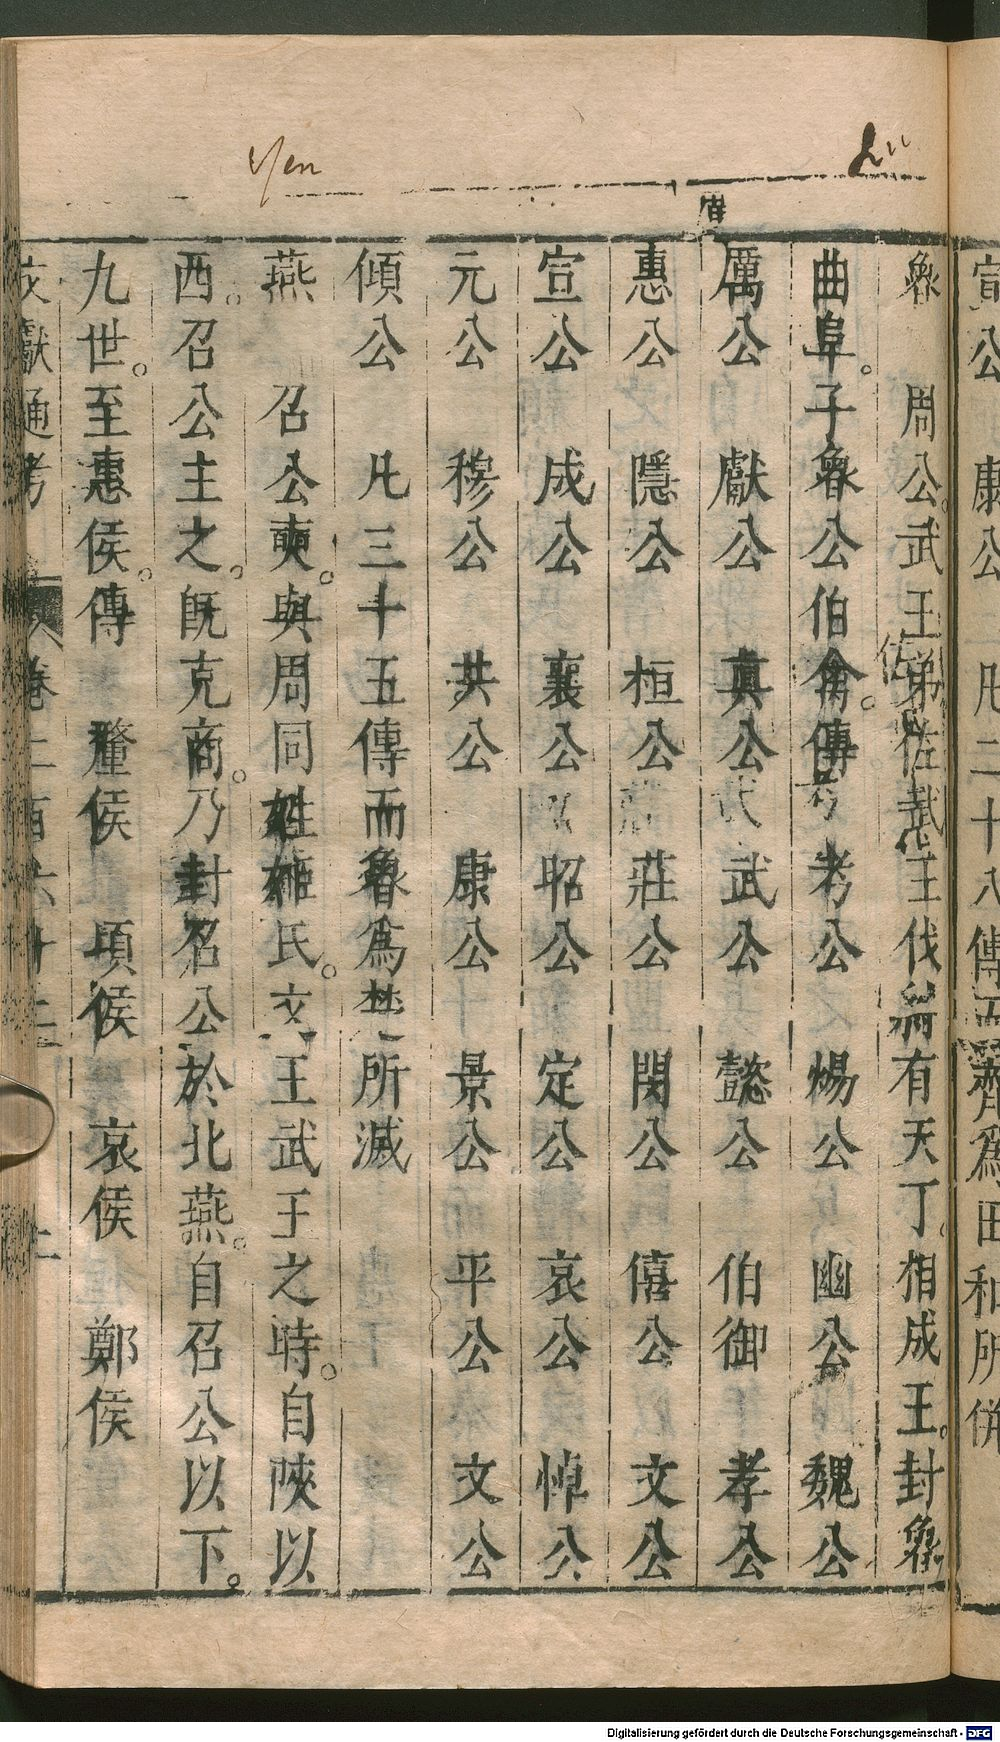 宣公 康公 凡二十八傳而齊為田和所併
Lu
Yen
魯 周公武王弟佐武王伐紂有天下相成王封魯
曲阜子魯公伯禽傳 考公 煬公 幽公 魏公
厲公 獻公 真公 武公 懿公 伯御 孝公
惠公 隱公 桓公 莊公 閔公 僖公 文公
宣公 成公 襄公 昭公 定公 哀公 悼公
元公 穆公 共公 康公 景公 平公 文公
傾公 凡三十五傳而魯為楚所滅
燕 召公奭與周同姓姬氏文王武王之時自陝以
西召公主之既克商乃封召公於北燕自召公以下
九世至惠侯傳 釐侯 頃侯 哀侯 鄭侯
文獻通考 卷二百六十二
Digitalisierung gefördert durch die Deutsche Forschungsgemeinschaft - DFG